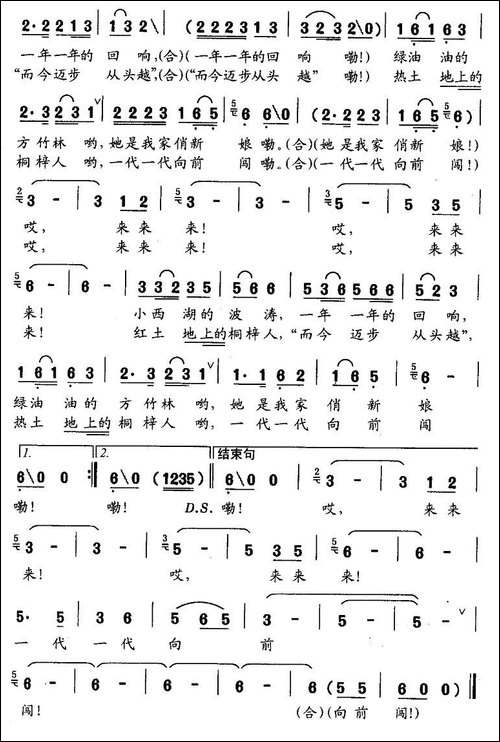 2·2 2213 | 132\ | (222313 | 323 2\0) | 1 61 63 |
一年一年的 回 响,(合)(一年一年的回 响 嘞!) 绿油 油的
“而今迈步 从头越”,(合)(“而今迈步从头 越” 嘞!) 热土 地上的
2·3231∨ | 2223 165 | 5 6 6\0 | (2·223 | 165 5 6) |
方竹林 哟,她是我家俏新 娘嘞。(合)(她是我家 俏新 娘!)
桐梓人 哟,一代一代向前 闯嘞。(合)(一代一代 向前 闯!)
2 3 - | 3 12 | 5 3 - | 3 - | 3 5 - | 5 35 |
哎, 来来 来! 哎, 来来
哎, 来来 来! 哎, 来来
5 6 - | 6 - | 33232 | 566 | 536566 | 523 |
来! 小西 湖的 波 涛, 一年 一年的 回 响,
来! 红土 地上的桐梓人, “而今 迈步 从头越”,
1 61 63 | 2·3231∨ | 1·3 62 | 1 6 5 | 5 6 - |
绿油 油的 方竹林 哟, 她 是我家 俏 新 娘
热土 地上的 桐梓人 哟, 一 代一代 向 前 闯
1. 2. 结束句
6\0 0 :‖ 6\0 (1235) | 6\0 0 | 2 3 - | 3 12 |
嘞! 嘞! D.S. 嘞! 哎, 来来
5 3 - | 3 - | 3 5 - | 5 35 | 5 6 - | 6 - |
来! 哎, 来来 来!
5· 5 | 3 6 | 5 65 | 3 - | 5 - | 5 - ∨ |
一 代 一代 向 前
5 6 - | 6 - | 6 - | 6 - | 6 (55 | 600) ‖
闯! (合)(向前 闯!)